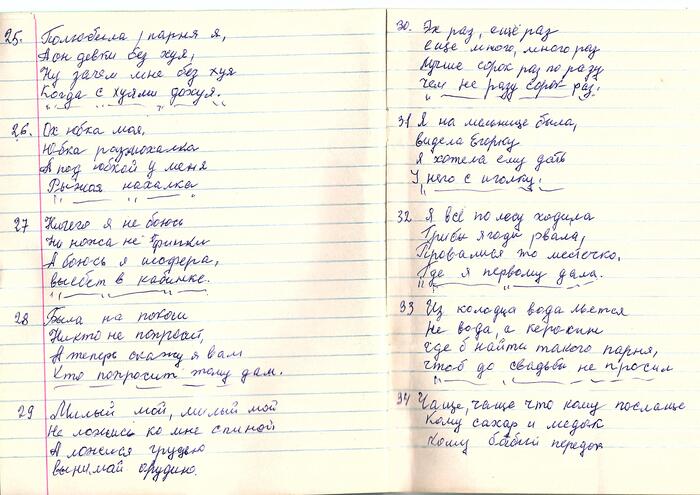 25. Полюбила парня я,
А он девки без хуя,
Ну зачем мне без хуя
Когда с хуями дохуя.
26. Ох юбка моя,
Юбка размохалка
А под юбкой у меня
Рыжая нахалка
27 Ничего я не боюсь
Ни ножа не финки
А боюсь я шофера,
выебет в кабинке.
28 Была на
Никто не попросил,
А теперь скажу я вам
Кто попросит тому дам.
29 Милый мой, милый мой
Не ложись ко мне спиной
А ложися грудею
вынимай орудию.
30. Эх раз, ещё раз
еще много, много раз
Лучше сорок раз по разу
Чем не разу сорок раз.
31 Я на мельнице была,
видела Егорку
Я хотела ему дать
У него с иголку.
32 Я всё по лесу ходила
Грибы ягоды рвала,
Провались то местечко,
Где я первому дала.
33 Из колодца вода льется
Не вода, а керосин
Где б найти такого парня,
Чтоб до свадьбы не просил
34 Чаще, чаще что кому послаще
Кому сахар и медок
Кому бабий передок